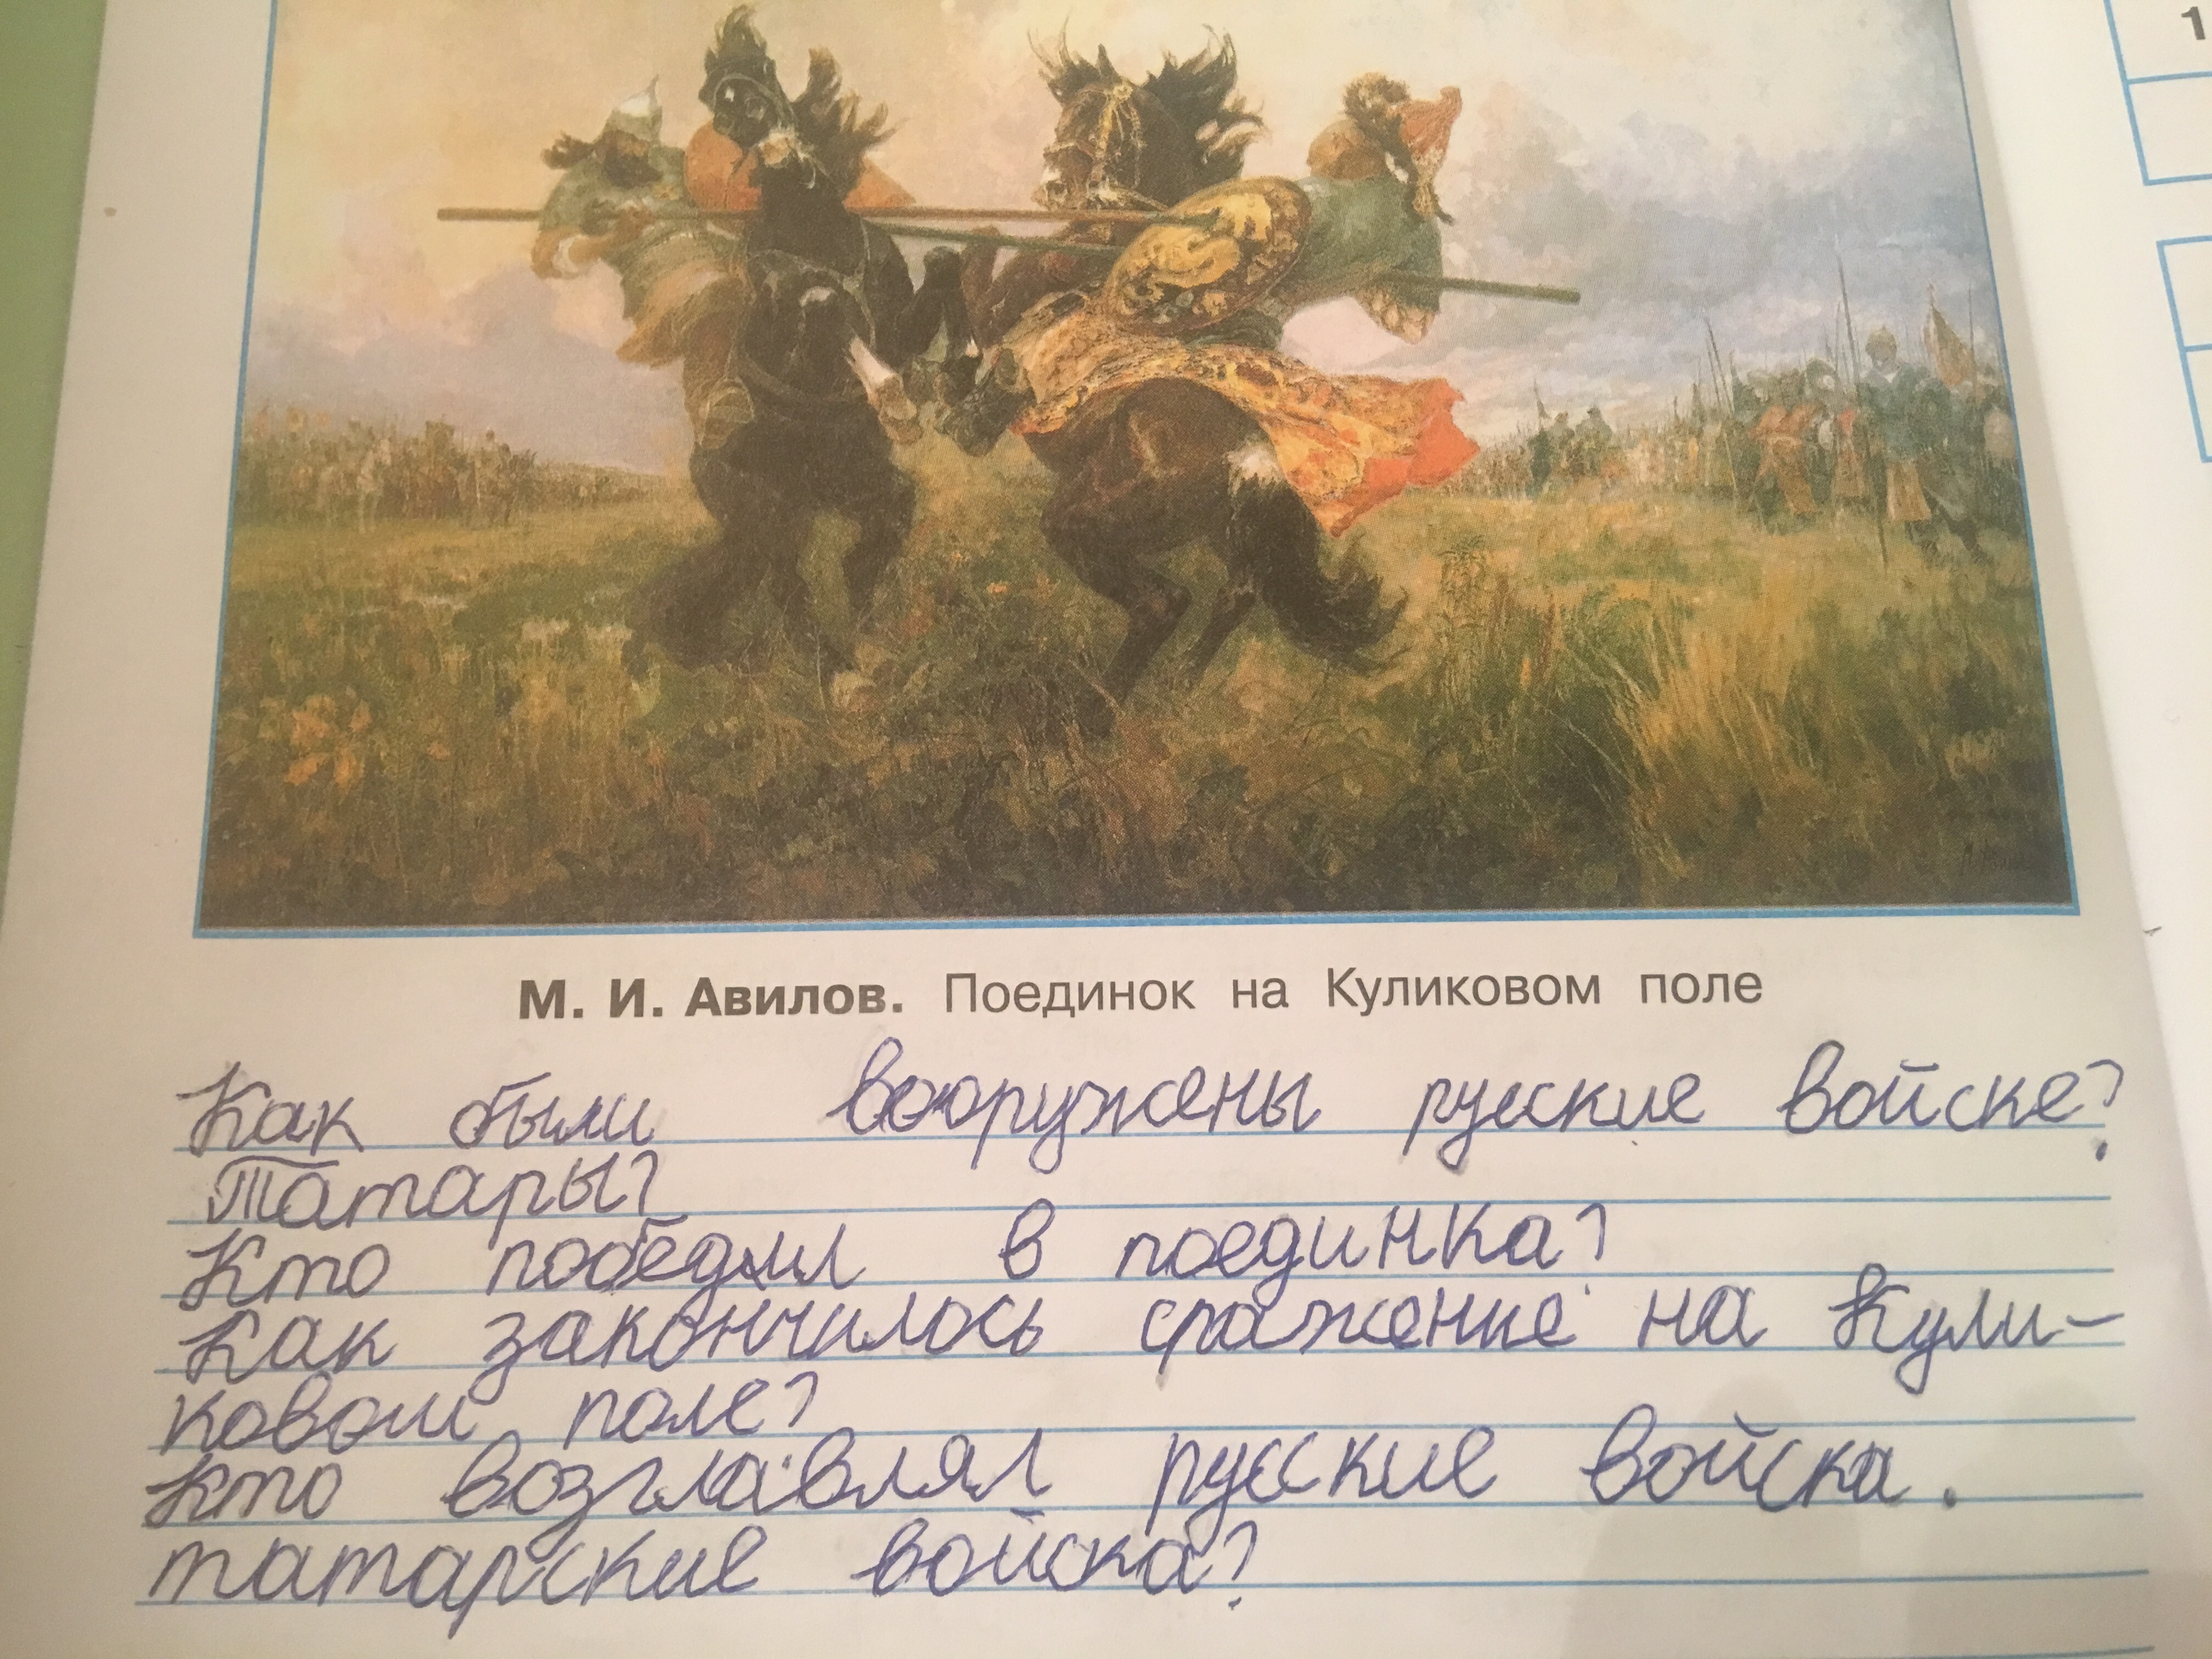 1
М. И. Авилов. Поединок на Куликовом поле
Как были вооружены русские войске?
Татары?
Кто победил в поединка?
Как закончилось сражение на Кули-
ковом поле?
Кто возглавлял русские войска.
татарские войска?